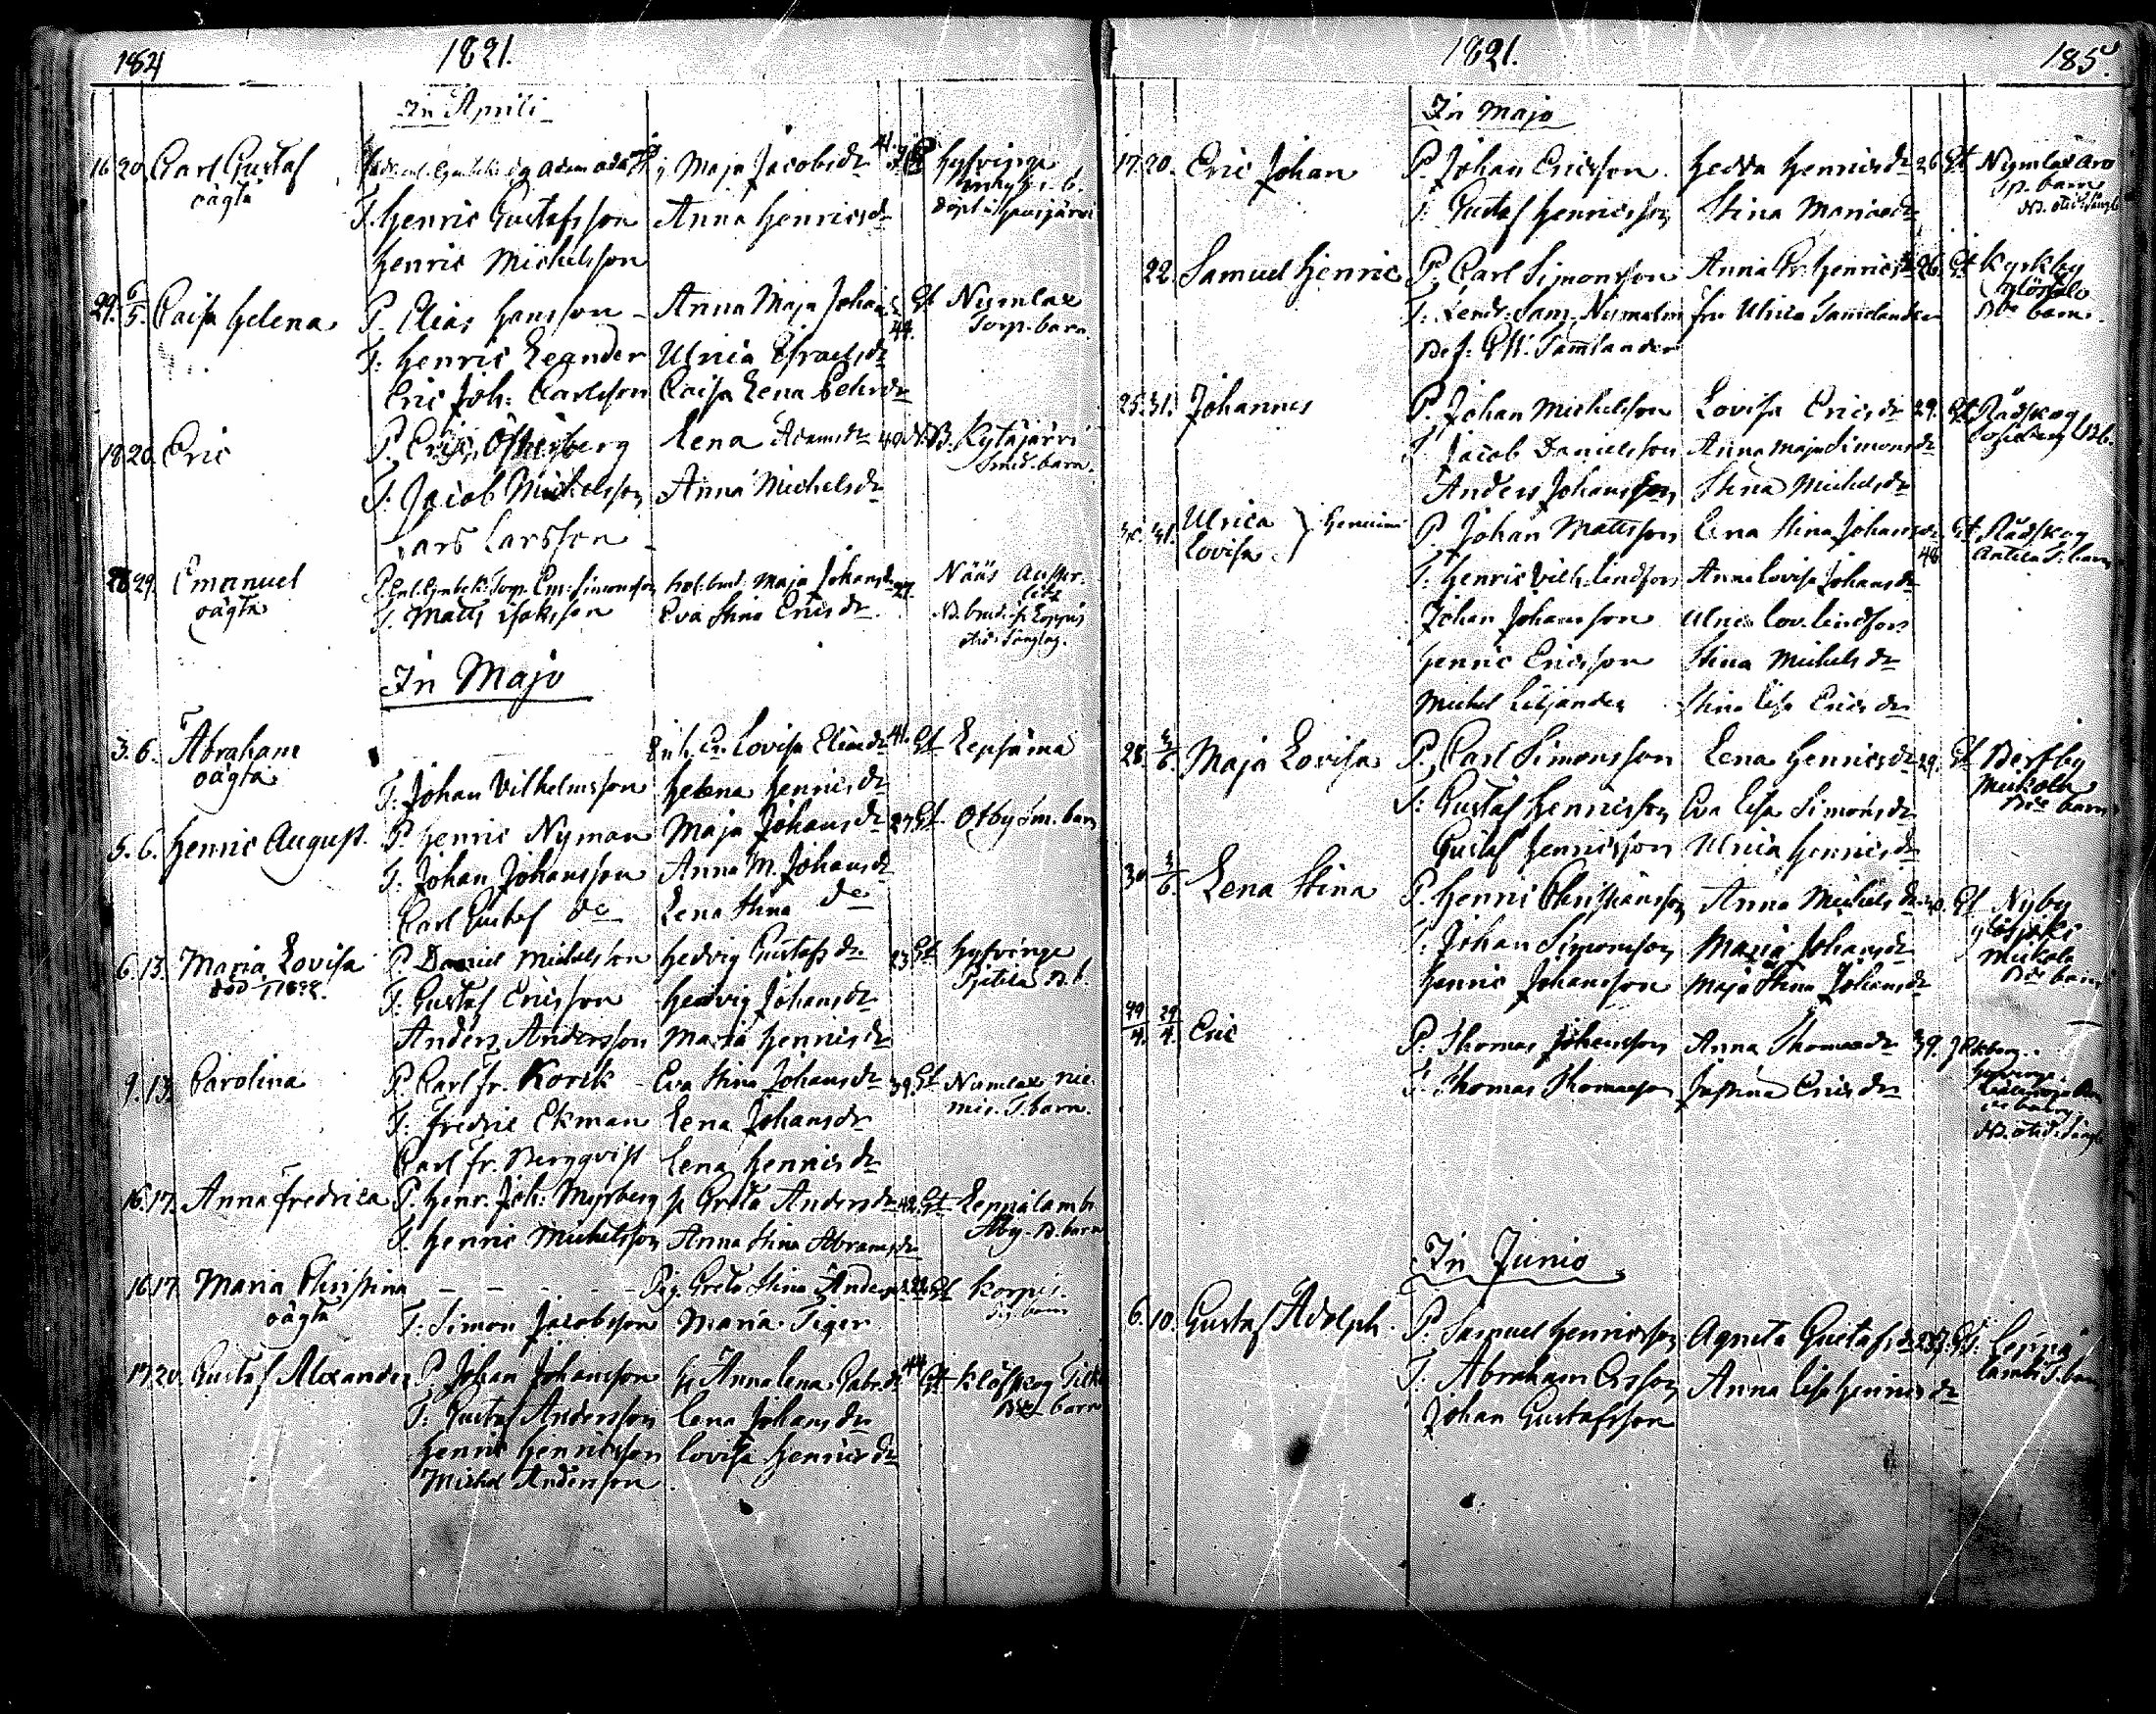 184 1821.
In Aprili
16 20 Carl Gustaf Maja Jacobsdr 41 Hyfvinge
oägta
T. Henric Gustafsson Anna Henricsdr döpt i Hausjärvi
Henric Michelsson
29. 6/5. Caisa Helena P. Elias Hansson Anna Maja Johansdr 44. Et Numlax
Torp. barn
T: Henric Leander Ulrica Israelsdr
Eric Joh: Carlsson Caisa Lena Pehrsdr
18 20. Eric P. Eric Österberg Lena Adamsdr 40 N.B. Kytäjärvi
Smed. barn.
T: Jacob Michelsson Anna Michelsdr
Lars Larsson
28 29. Emanuel P. Enl. Em: Simonsson Maja Johansdr 27. Nääs
oägta T. Matts Isaksson Eva Stina Ericsdr
In Majo
3. 6. Abraham Enk. Lovisa Eliaedr 41. Et Lepsäma
oägta
T: Johan Vilhelmsson Helena Henricsdr
5. 6. Henric August. P. Henric Nyman Maja Johansdr 27 Et Otby Sm. barn
T: Johan Johansson Anna M. Johansdr
Carl Gustaf do Lena Stina do
6. 13. Maria Lovisa P. Daniel Michelsson Hedvig Gustafsdr 23 Et Hyfvinge
död
T: Gustaf Ericsson Hedvig Johansdr
Anders Andersson Maria Henricsdr
9. 13. Carolina P. Carl Fr. Korik Eva Stina Johansdr 39. Et Numlax Nie
mis. T. barn.
T: Fredric Ekman Lena Johansdr
Carl Fr. Bergqvist Lena Henricsdr
16. 17. Anna Fredrica P. Henr. Joh: Myrberg H Greta Andersdr 42. Et Leppälamb
Åby. B. barn
T. Henric Michelsson Anna Stina Abramsdr
16 17 Maria Christina - - - - - Pig. Greta Stina Andersdr 22 Et Korpis.
oägta T: Simon Jacobsson Maria Tiger
17 20. Gustaf Alexander P. Johan Johansson H Anna Lena Gabr.dr 44 Et Klöfskog
Bde barn
T: Gustaf Andersson Lena Johansdr
Henric Henricsson Lovisa Henricsdr
Michel Andersson
1821. 185.
In Majo
17. 20. Eric Johan P. Johan Ericsson. Hedda Henricsdr 26 Et Numlax Aro
Tp. barn
T: Gustaf Henricsson Stina Mariaedr
22. Samuel Henric P. Carl Simonsson Anna Cr. Henricsdr 26. Et Kyrkby
T: Lendr: Sam. Nymalm Fru Ulrica Tamelander Bde barn.
Bef: G.W. Tamlander
25. 31. Johannes P. Johan Michelsson Lovisa Ericsdr 29. Et Rådskog
T Jacob Danielsson Anna Maja Simonsdr
Anders Johansson Stina Michelsdr
30. 31. Ulrica Lovisa } Gemini P. Johan Mattsson Lena Stina Johansdr 46 Et Rådskog
Antila T: barn
T. Henric Vilh. Lindfors Anna Lovisa Johansdr
Johan Johansson Ulrica Lov. Lindfors
Henric Ericsson Stina Michelsdr
Michel Liljander Stina Lisa Ericsdr
28. 3/6. Maja Lovisa P. Carl Simonsson Lena Henricsdr 29. Et Herfby
Mickola
Bde barn
T: Gustaf Henricsson Eva Lisa Simonsdr
Gustaf Henricsson Ulrica Henricsdr
30 3/6. Lena Stina P. Henric Christiansson Anna Michelsdr Et Nyby
T: Johan Simonsson Maria Johansdr Mickala
Henric Johansson Maja Stina Johansdr Bde barn
29/4. Eric P. Thomas Johansson Anna Thomaedr 39.
T. Thomas Thomasson Justina Ericsdr
In Junio
6. 10. Gustaf Adolph. P. Samuel Henricsson Agneta Gustafsdr Et. Leppä
lambi T. barn
T. Abraham Ersson Anna Lisa Henricsdr
Johan Gustafsson